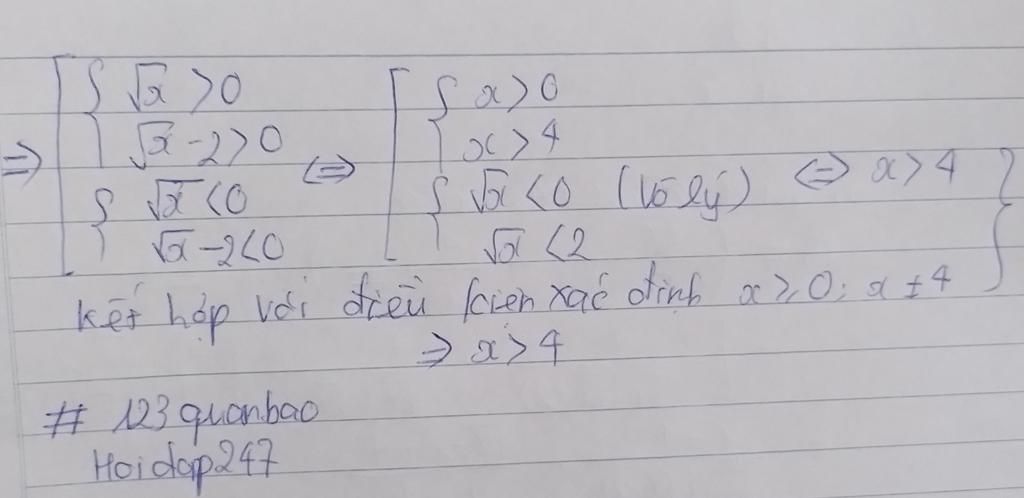 ⇒ [ { √x > 0 ⇔ [ { x > 0
√x - 2 > 0 x > 4
{ √x < 0 { √x < 0 (Vô lý) ⇔ x > 4 }
√x - 2 < 0 √x < 2
Kết hợp với điều kiện xác định x ≥ 0; x ≠ 4
⇒ x > 4
# 123quanbao
Hoidap247